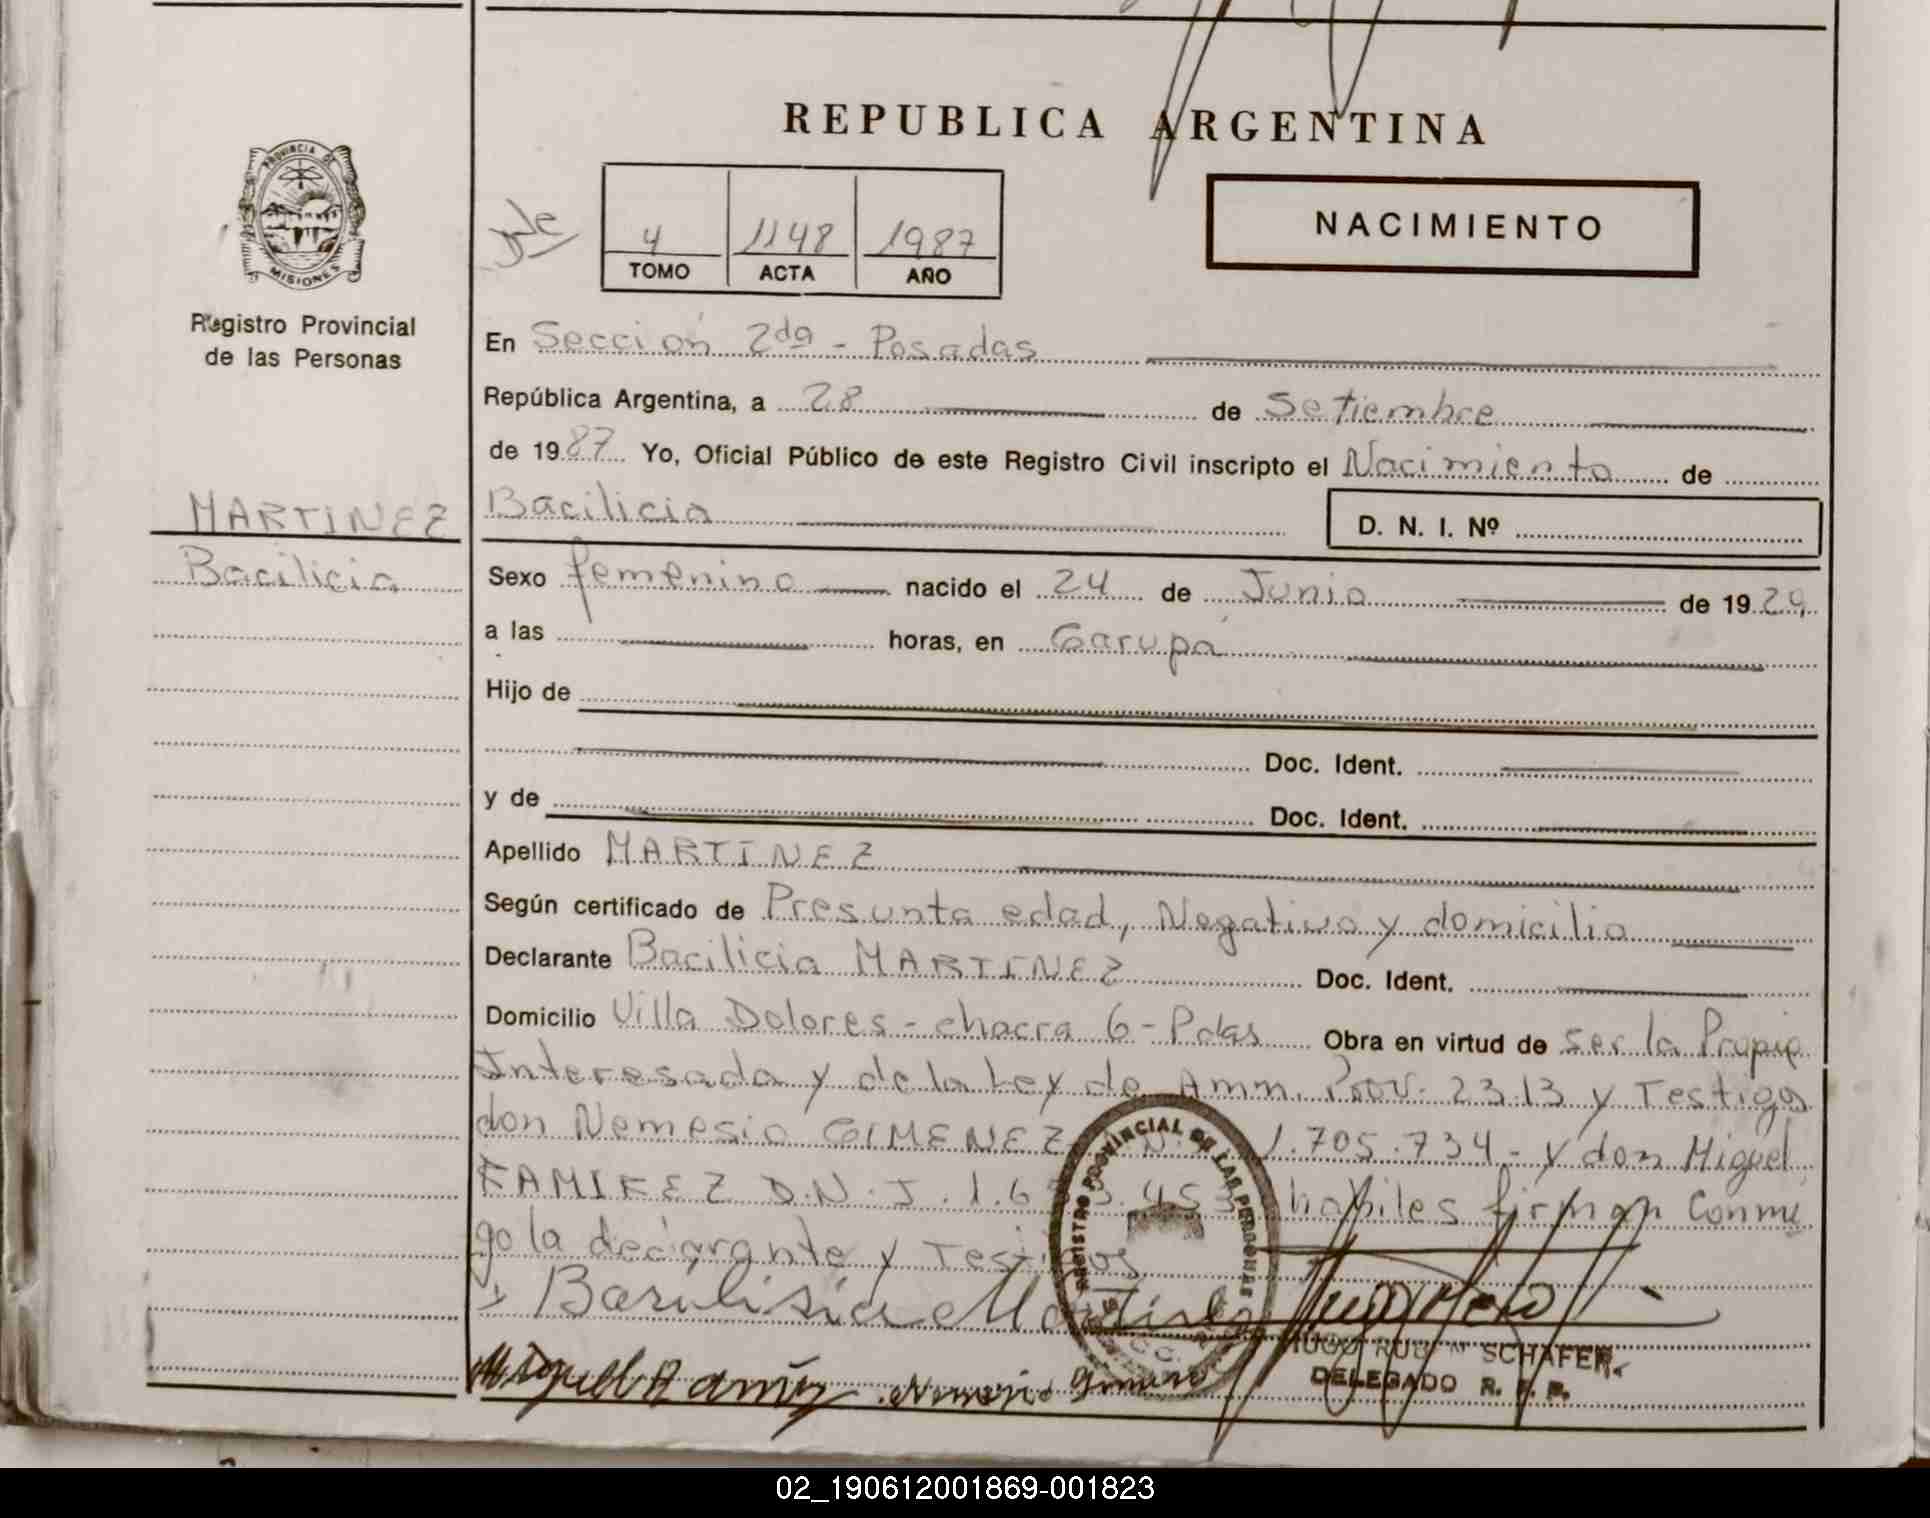 REPUBLICA ARGENTINA
PROVINCIA DE MISIONES
Registro Provincial
de las Personas
4 1148 1987
TOMO ACTA AÑO
NACIMIENTO
En Sección 2da - Posadas
República Argentina, a 28 de Setiembre
de 1987 Yo, Oficial Público de este Registro Civil inscripto el Nacimiento de
MARTINEZ
Bacilicia
Bacilicia
D. N. I. Nº
Sexo femenino nacido el 24 de Junio de 1929
a las horas, en Garupá
Hijo de
Doc. Ident.
y de Doc. Ident.
Apellido MARTINEZ
Según certificado de Presunta edad, Negativo y domicilio
Declarante Bacilicia MARTINEZ Doc. Ident.
Domicilio Villa Dolores - chacra 6 - Pdas Obra en virtud de ser la Propia
Interesada y de la Ley de Amn. Prov. 2313 y Testigos
don Nemesio GIMENEZ 1.705.734 - y don Miguel
RAMIREZ D.N.I. habiles firman Conmi
go la declarante y Testigos
Basilisia Martinez
Miguel Ramirez Nemesio Gimenez
REGISTRO PROVINCIAL DE LAS PERSONAS
HUGO RUBEN SCHAFER
DELEGADO R. P. P.
02_190612001869-001823